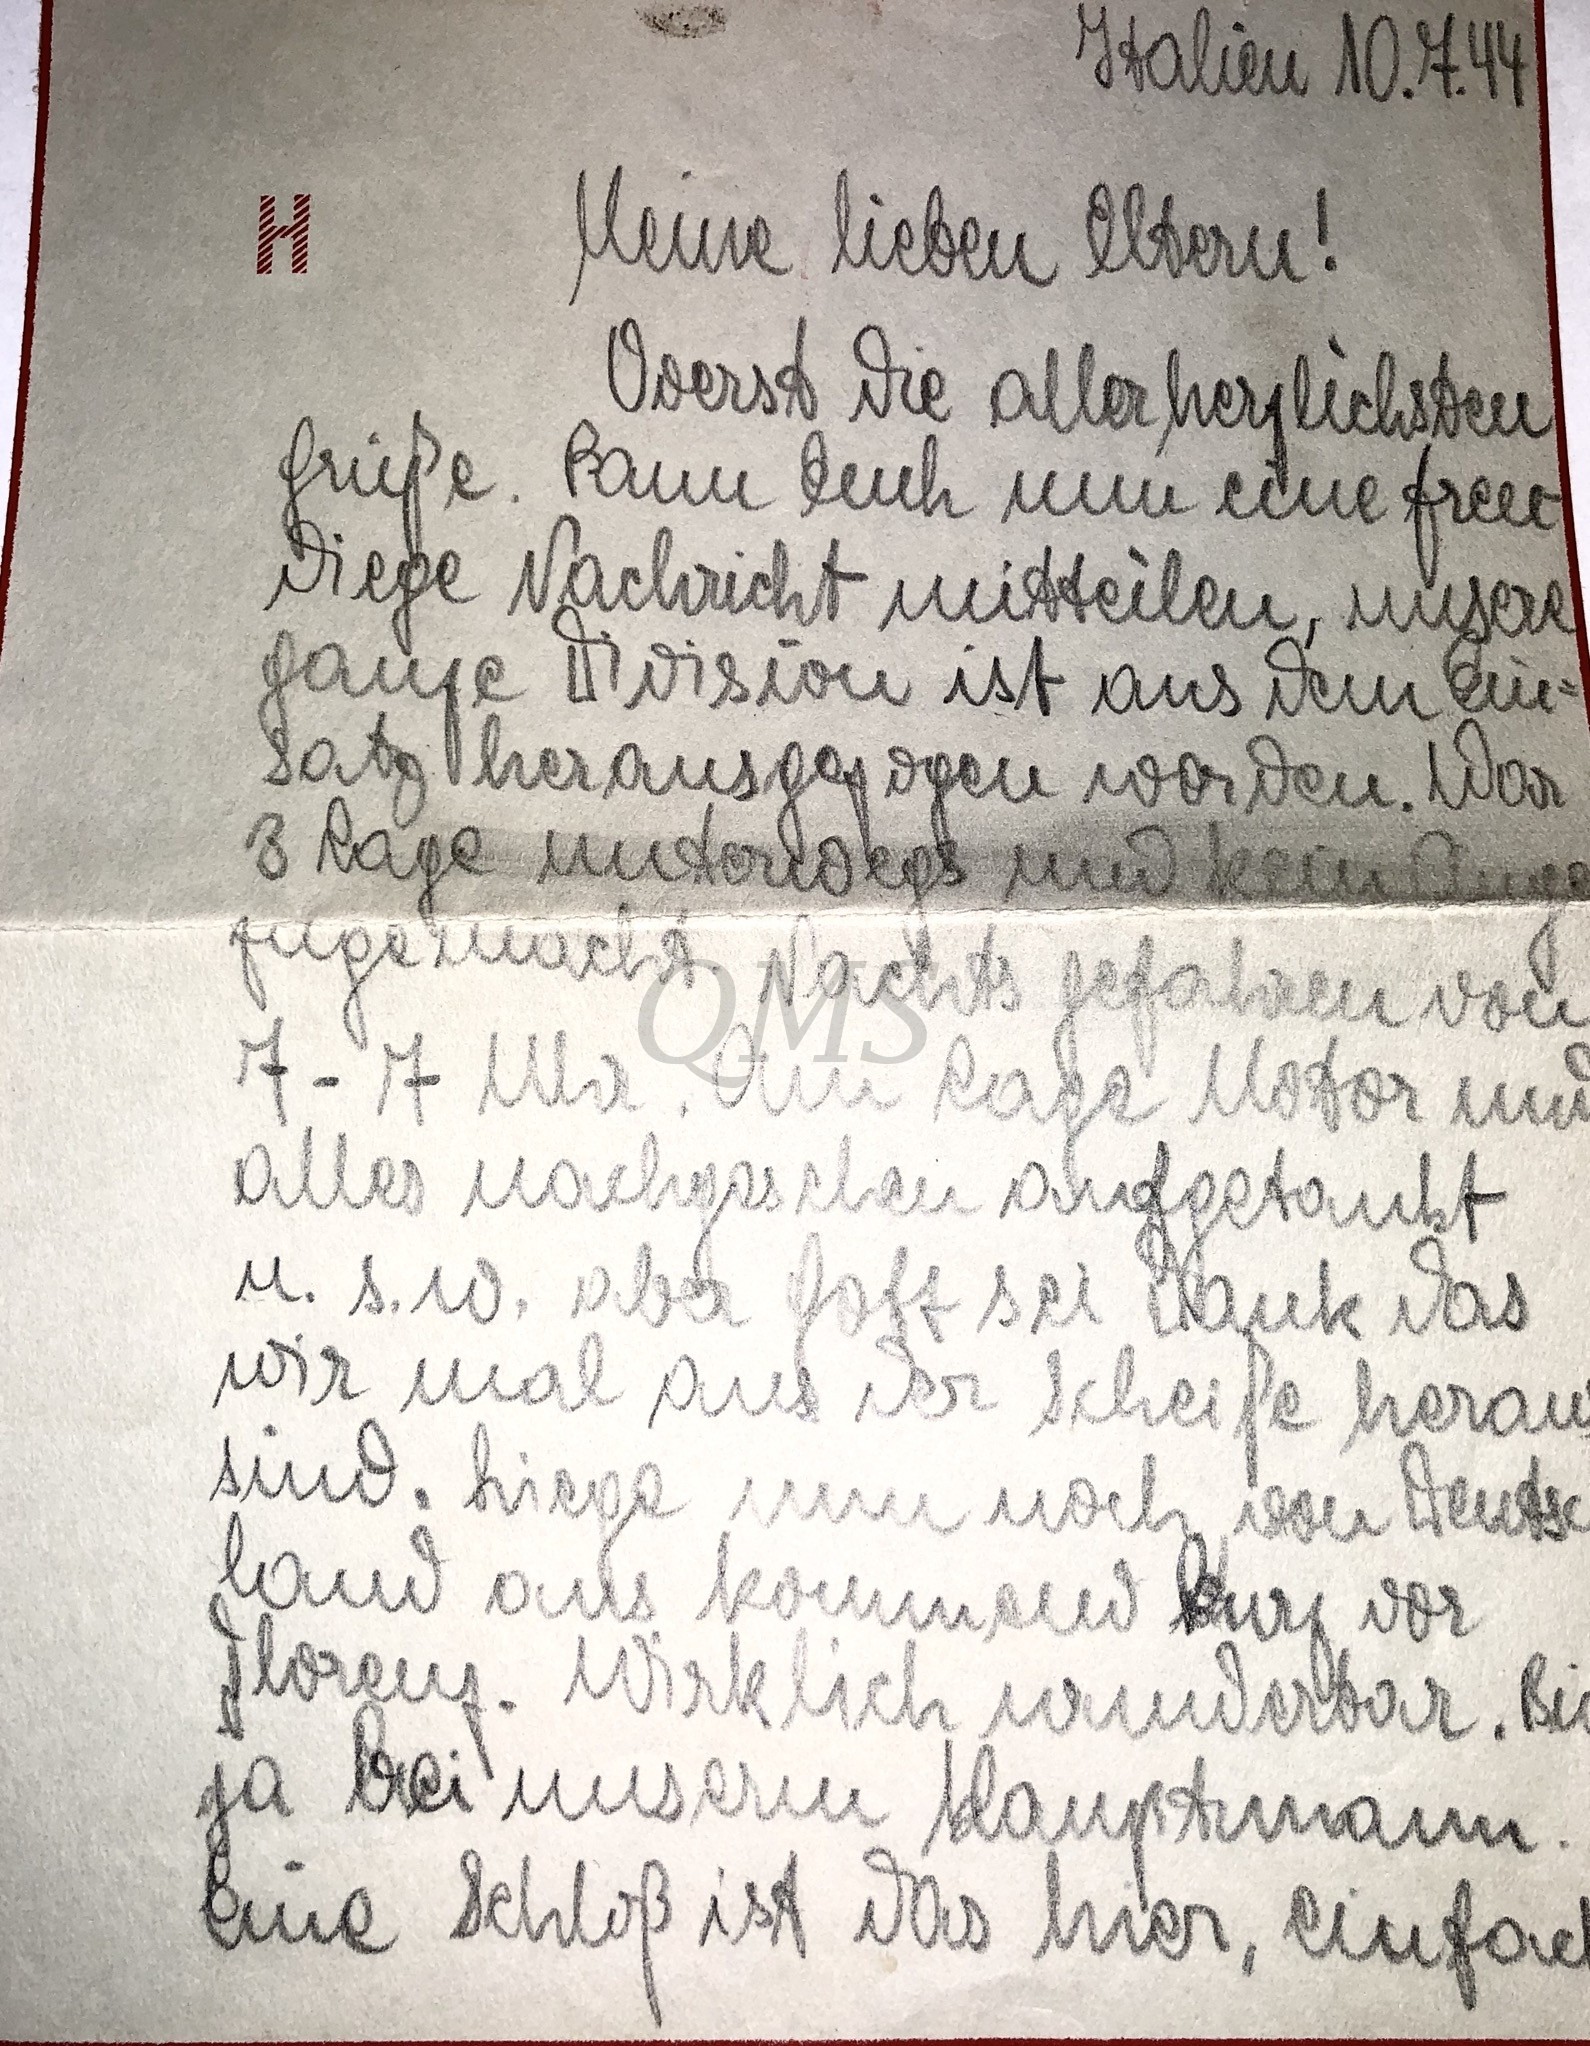 Italien 10.7.44
H
Meine lieben Eltern!
Voerst die allerherzlichsten
Grüße. Kann Euch nun eine freu-
diege Nachricht mitteilen, unsere
ganze Division ist aus dem Ein=
satz herausgezogen worden. War
3 Tage unterwegs und kein Auge
zugemacht. Nachts gefahren von
QMS
7-7 Uhr. Am Tage Motor und
alles nachgesehen aufgetankt
u. s. w. aber Gott sei Dank das
wir mal aus der Scheiße heraus
sind. Liege nun noch von Deutsch
land aus kommend kurz vor
Florenz. Wirklich wunderbar. Bin
ja bei unserm Hauptmann.
Eine Schloß ist das hier, einfach